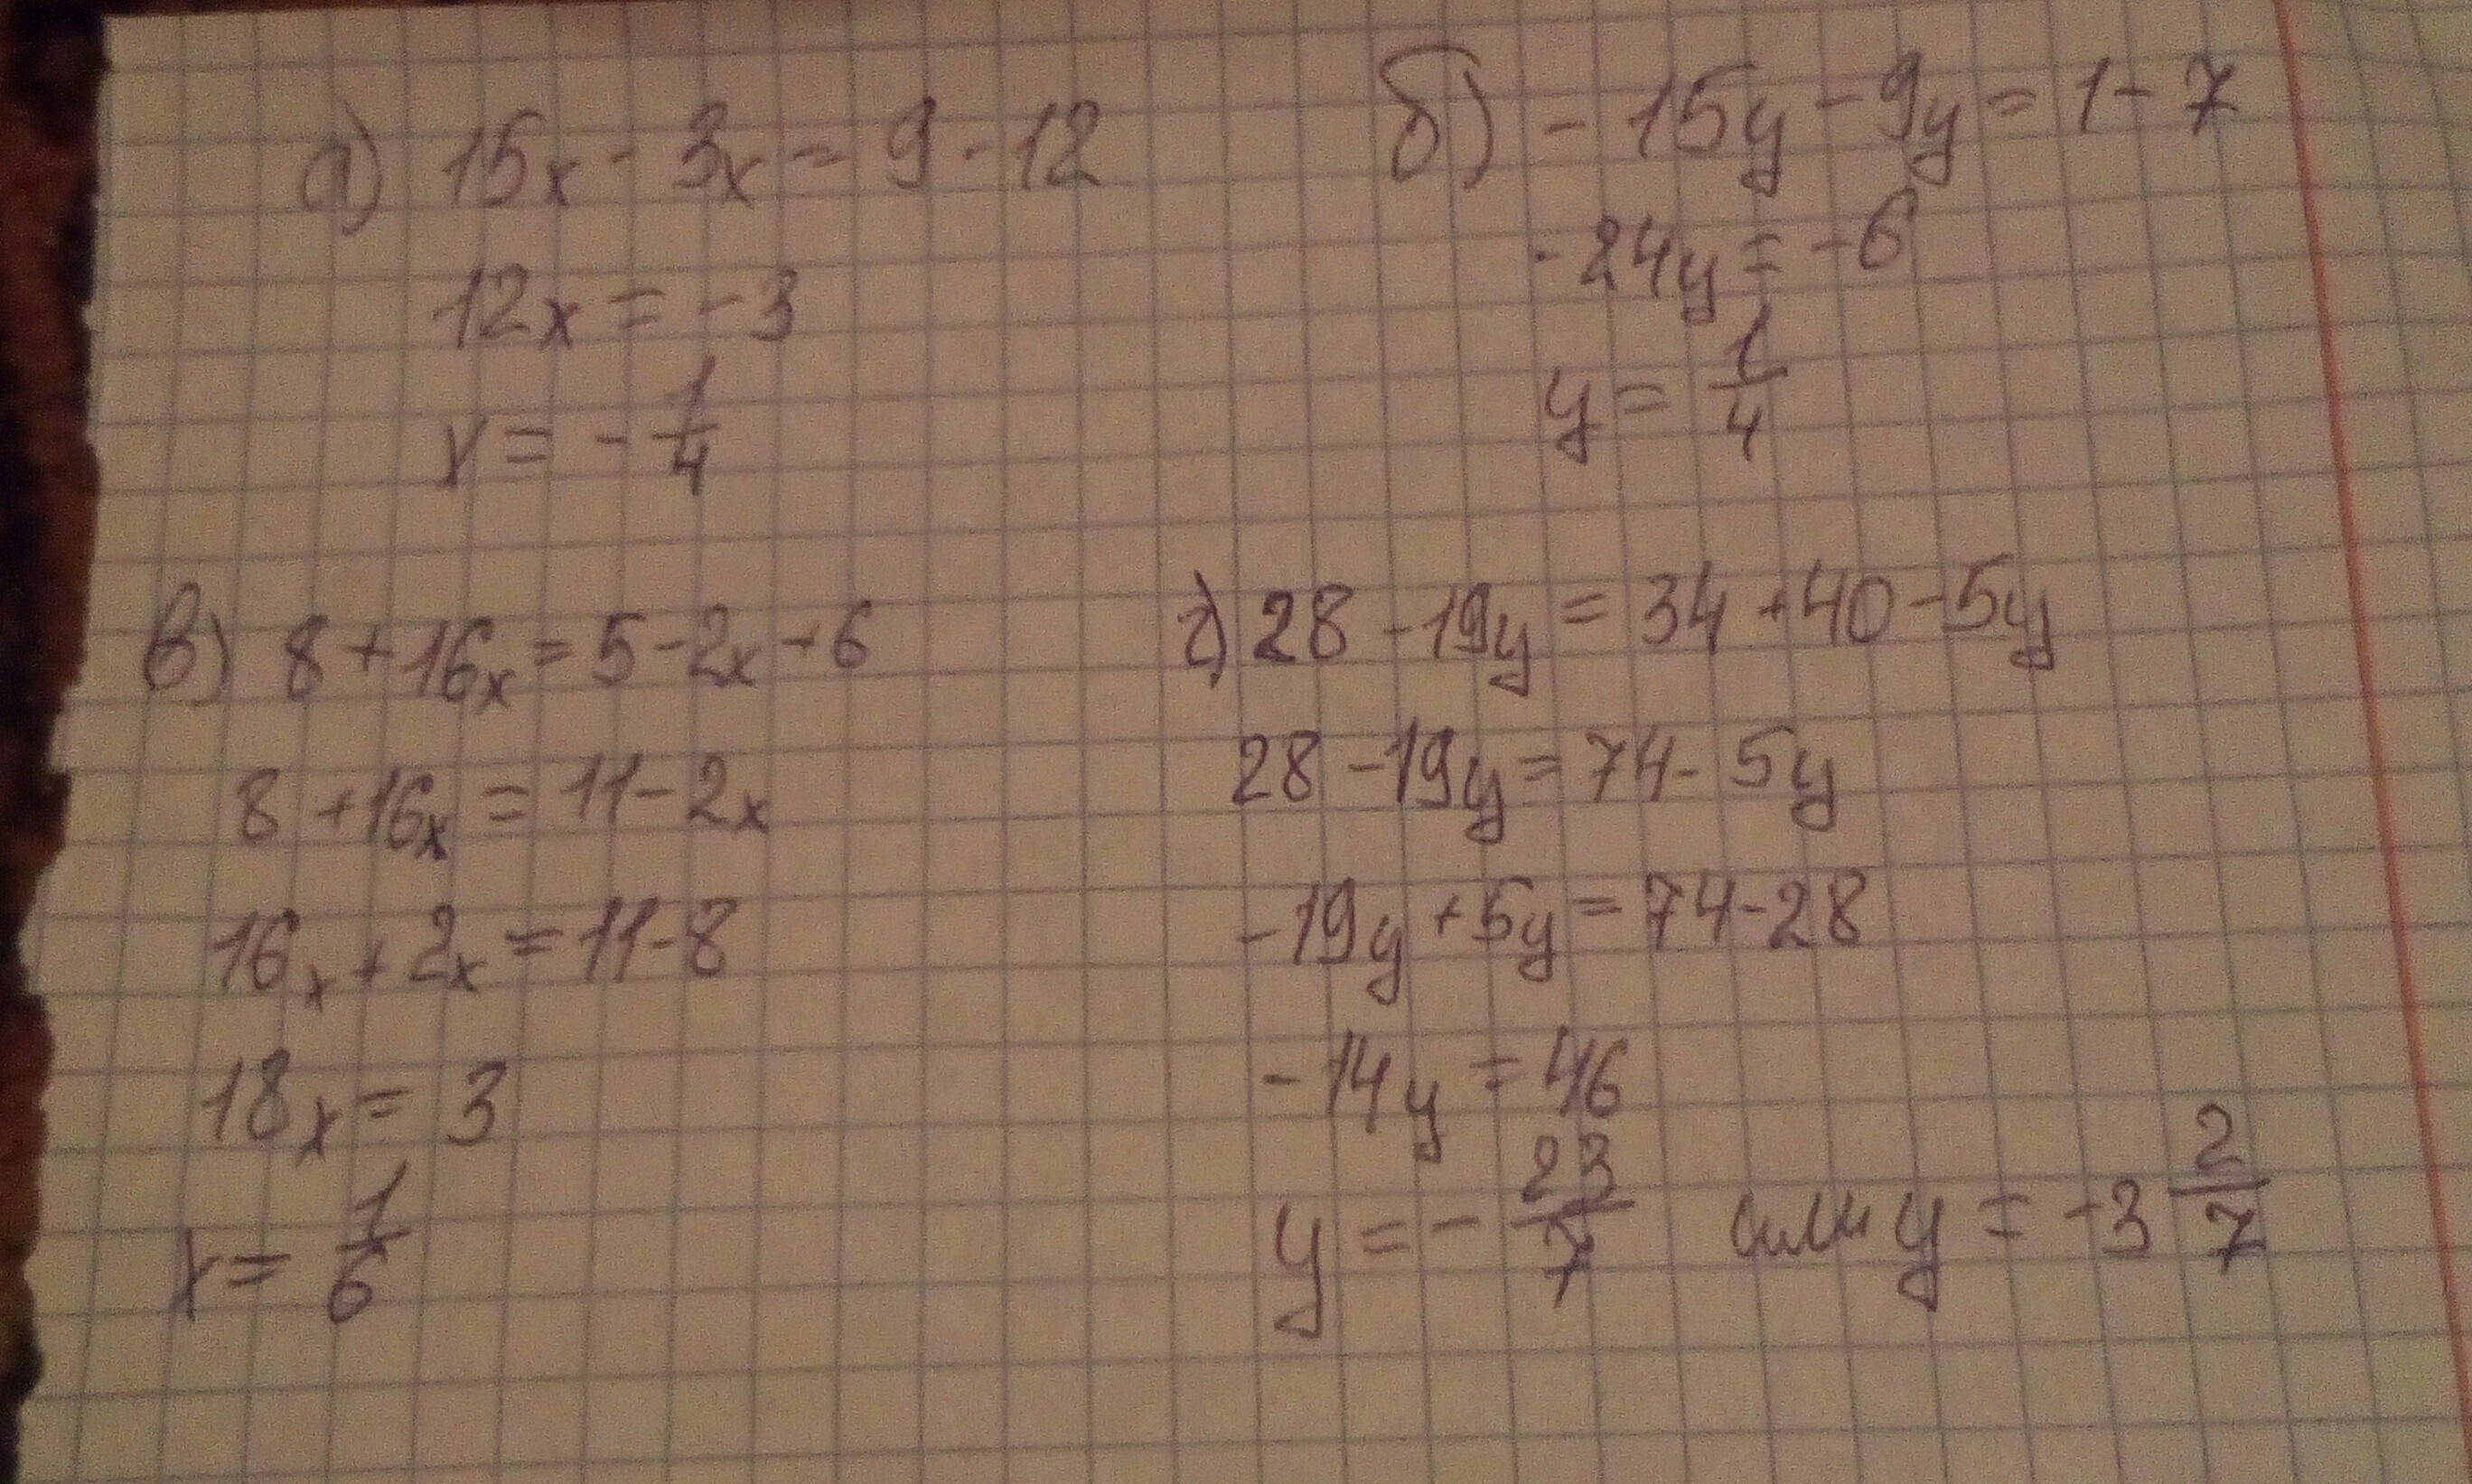 а) 15x - 3x = 9 - 12
12x = - 3
x = - 1/4
б) - 15y - 9y = 1 - 7
- 24y = - 6
y = 1/4
в) 8 + 16x = 5 - 2x + 6
8 + 16x = 11 - 2x
16x + 2x = 11 - 8
18x = 3
x = 1/6
г) 28 - 19y = 34 + 40 - 5y
28 - 19y = 74 - 5y
- 19y + 5y = 74 - 28
- 14y = 46
y = - 23/7 или y = - 3 2/7